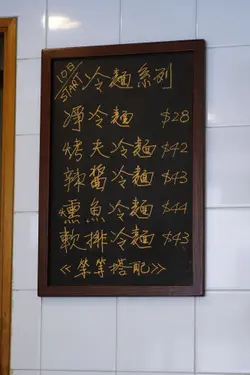 10日 START 冷麵系列
淨冷麵 $28
烤夫冷麵 $42
辣醬冷麵 $43
燻魚冷麵 $44
軟排冷麵 $43
《等等搭配》